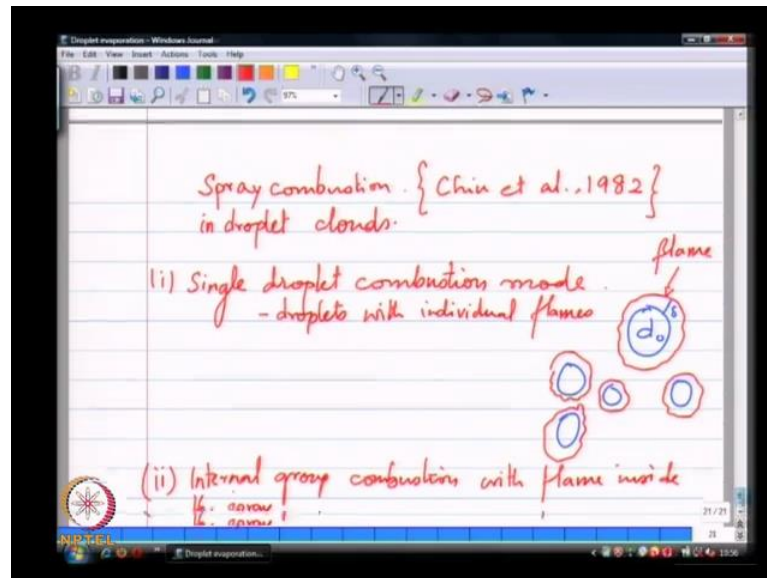 Droplet evaporation - Windows Journal
File Edit View Insert Actions Tools Help
B I
97%
Spray combustion. { Chiu et al., 1982 }
in droplet clouds.
flame
(i) Single droplet combustion mode.
- droplets with individual flames
δ
d₀
(ii) Internal group combustion with flame inside
21 / 21
21
NPTEL
Droplet evaporation...
10:56